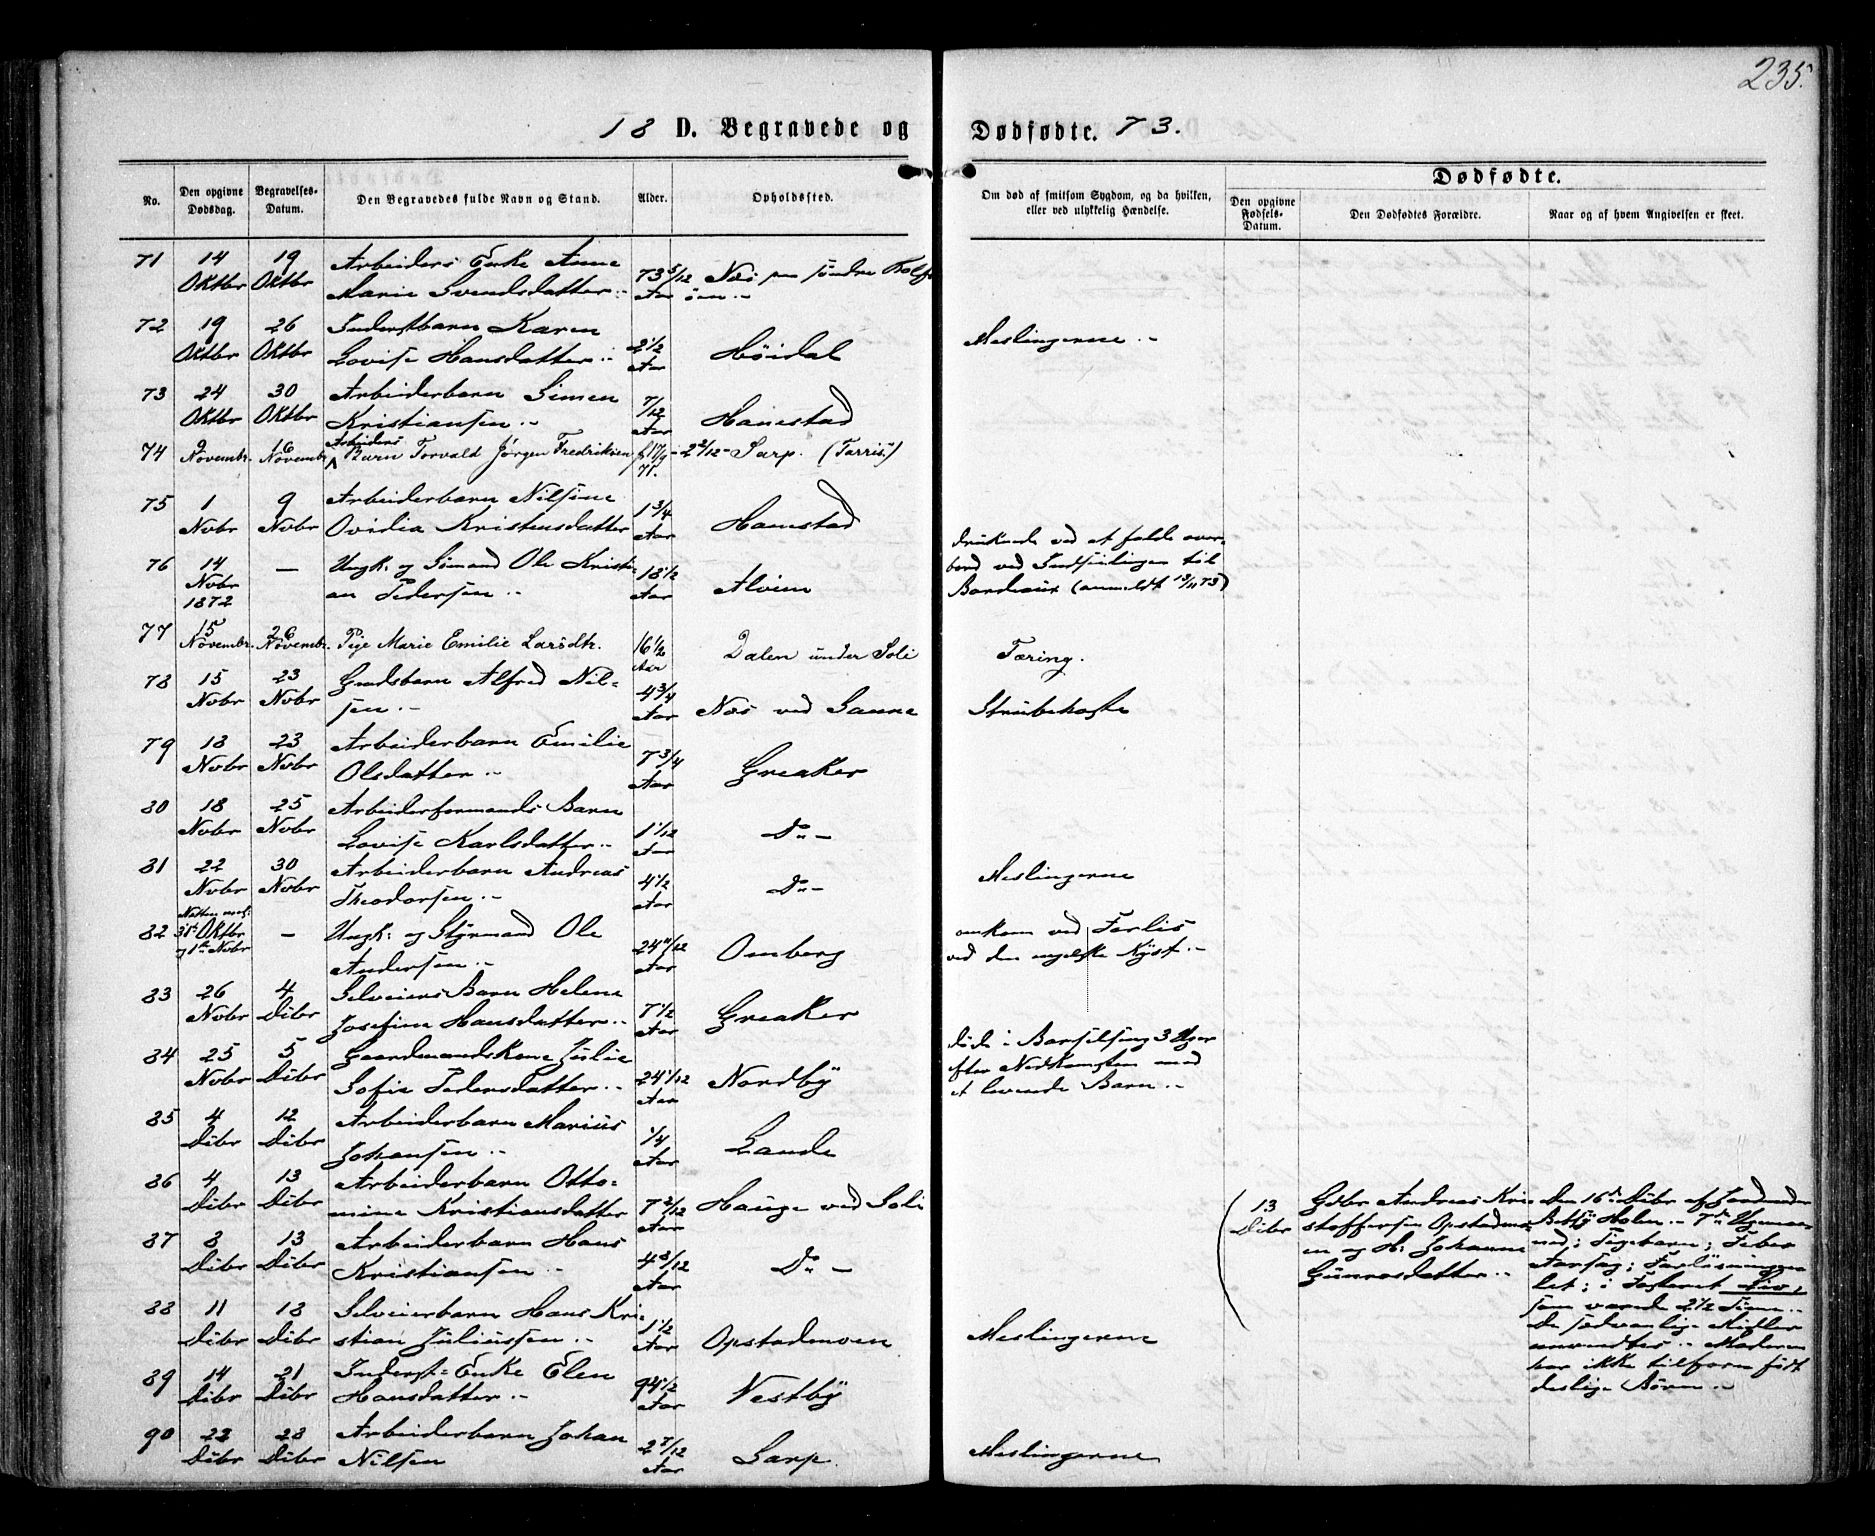 235.
18 D. Begravede og Dødfødte. 73.
No.
Den opgivne Dødsdag.
Begravelses-Datum.
Den Begravedes fulde Navn og Stand.
Alder.
Opholdssted.
Om død af smitsom Sygdom, og da hvilken, eller ved ulykkelig Hændelse.
Dødfødte.
Den opgivne Fødsels-Datum.
Den Dødfødtes Forældre.
Naar og af hvem Angivelsen er skeet.
71 14 Oktbr 19 Oktbr Arbeiders Enke Anne
Marie Svendsdatter.. 73 5/12 Aar Næs paa søndre Rolfs-
øen..
72 19 Oktbr 26 Oktbr Inderstbarn Karen
Lovise Hansdatter.. 2 1/2 Aar Höidal Meslingerne..
73 24 Oktbr 30 Oktbr Arbeiderbarn Simen
Kristiansen.. 7/12 Aar Hanestad
74 9 Novembr. 16 Novembr. Arbeiders Barn Torvald Jörgen Fredriksen f 17/9 71. - 2 2/12 - Sarp. (Torris)
75 1 Novbr 9 Novbr Arbeiderbarn Nilsine
Ovidia Kristensdatter 1 3/4 Aar Hanestad
76 14 Novbr 1872 — Ungk: og Sömand Ole Kristi-
an Pedersen.. 18 1/2 Aar Alvim
druknede ved at falde over-
bord ved Indseilingen til
Bordeaux (anmeldt 13/11 73)
77 15 Novembr. 26 Novembr. Pige Marie Emilie Larsdtr. 16 1/2 Aar Dalen under Soli Tæring.
78 15 Novbr 23 Novbr Gaardsbarn Alfred Nil-
sen.. 4 3/4 Aar Næs ved Laune Strubehoste
79 18 Novbr 23 Novbr Arbeiderbarn Emilie
Olsdatter.. 7 3/4 Aar Greaker
80 18 Novbr 25 Novbr Arbeiderformands Barn
Lovise Karlsdatter.. 1 1/12 Aar Do —
81 22 Novbr 30 Novbr Arbeiderbarn Andreas
Theodorsen.. 4 1/2 Aar Do — Meslingerne
82 Natten mel: 31te Oktbr og 1ste Novbr — Ungk: og Styrmand Ole
Andersen.. 24 11/12 Aar Omberg
omkom ved Forlis
ved den engelske Kyst..
83 26 Novbr 4 Dcbr Selveiers Barn Helene
Josefine Hansdatter.. 7 1/2 Aar Greaker
84 25 Novbr 5 Dcbr Gaardmandskone Julie
Sofie Pedersdatter.. 24 1/12 Aar Nordby
döde i Barselseng 3 Uger
efter Nedkomsten med
et levende Barn..
85 4 Dcbr 12 Dcbr Arbeiderbarn Marius
Johansen.. 1/4 Aar Lande
86 4 Dcbr 13 Dcbr Arbeiderbarn Otto-
mine Kristiansdatter 7 2/12 Aar Hauge ved Soli
87 8 Dcbr 13 Dcbr Arbeiderbarn Hans
Kristiansen.. 4 8/12 Aar Do —
88 11 Dcbr 18 Dcbr Selveierbarn Hans Kri-
stian Juliussen.. 1 1/2 Aar Opstadmoen Meslingerne
89 14 Dcbr 21 Dcbr Inderst-Enke Elen
Hansdatter.. 94 1/2 Aar Vestby
90 22 Dcbr 28 Dcbr Arbeiderbarn Johan
Nilsen 2 7/12 Aar Sarp Meslingerne
13 Dcbr
Gdbr Andreas Kri-
stoffersen Opstadmo-
en og H: Johanne
Gunrosdatter..
Den 16de Dcbr af Jordmoder
Betsy Holen..
ned; Pigebarn; Feber
Aarsag; Forlösningen
let; i Fosteret Liv,
som varede 2 1/2 Time..
De sædvanlige Midler
anvendtes.. Moderen
har ikke tilforn födt
deslige Börn..